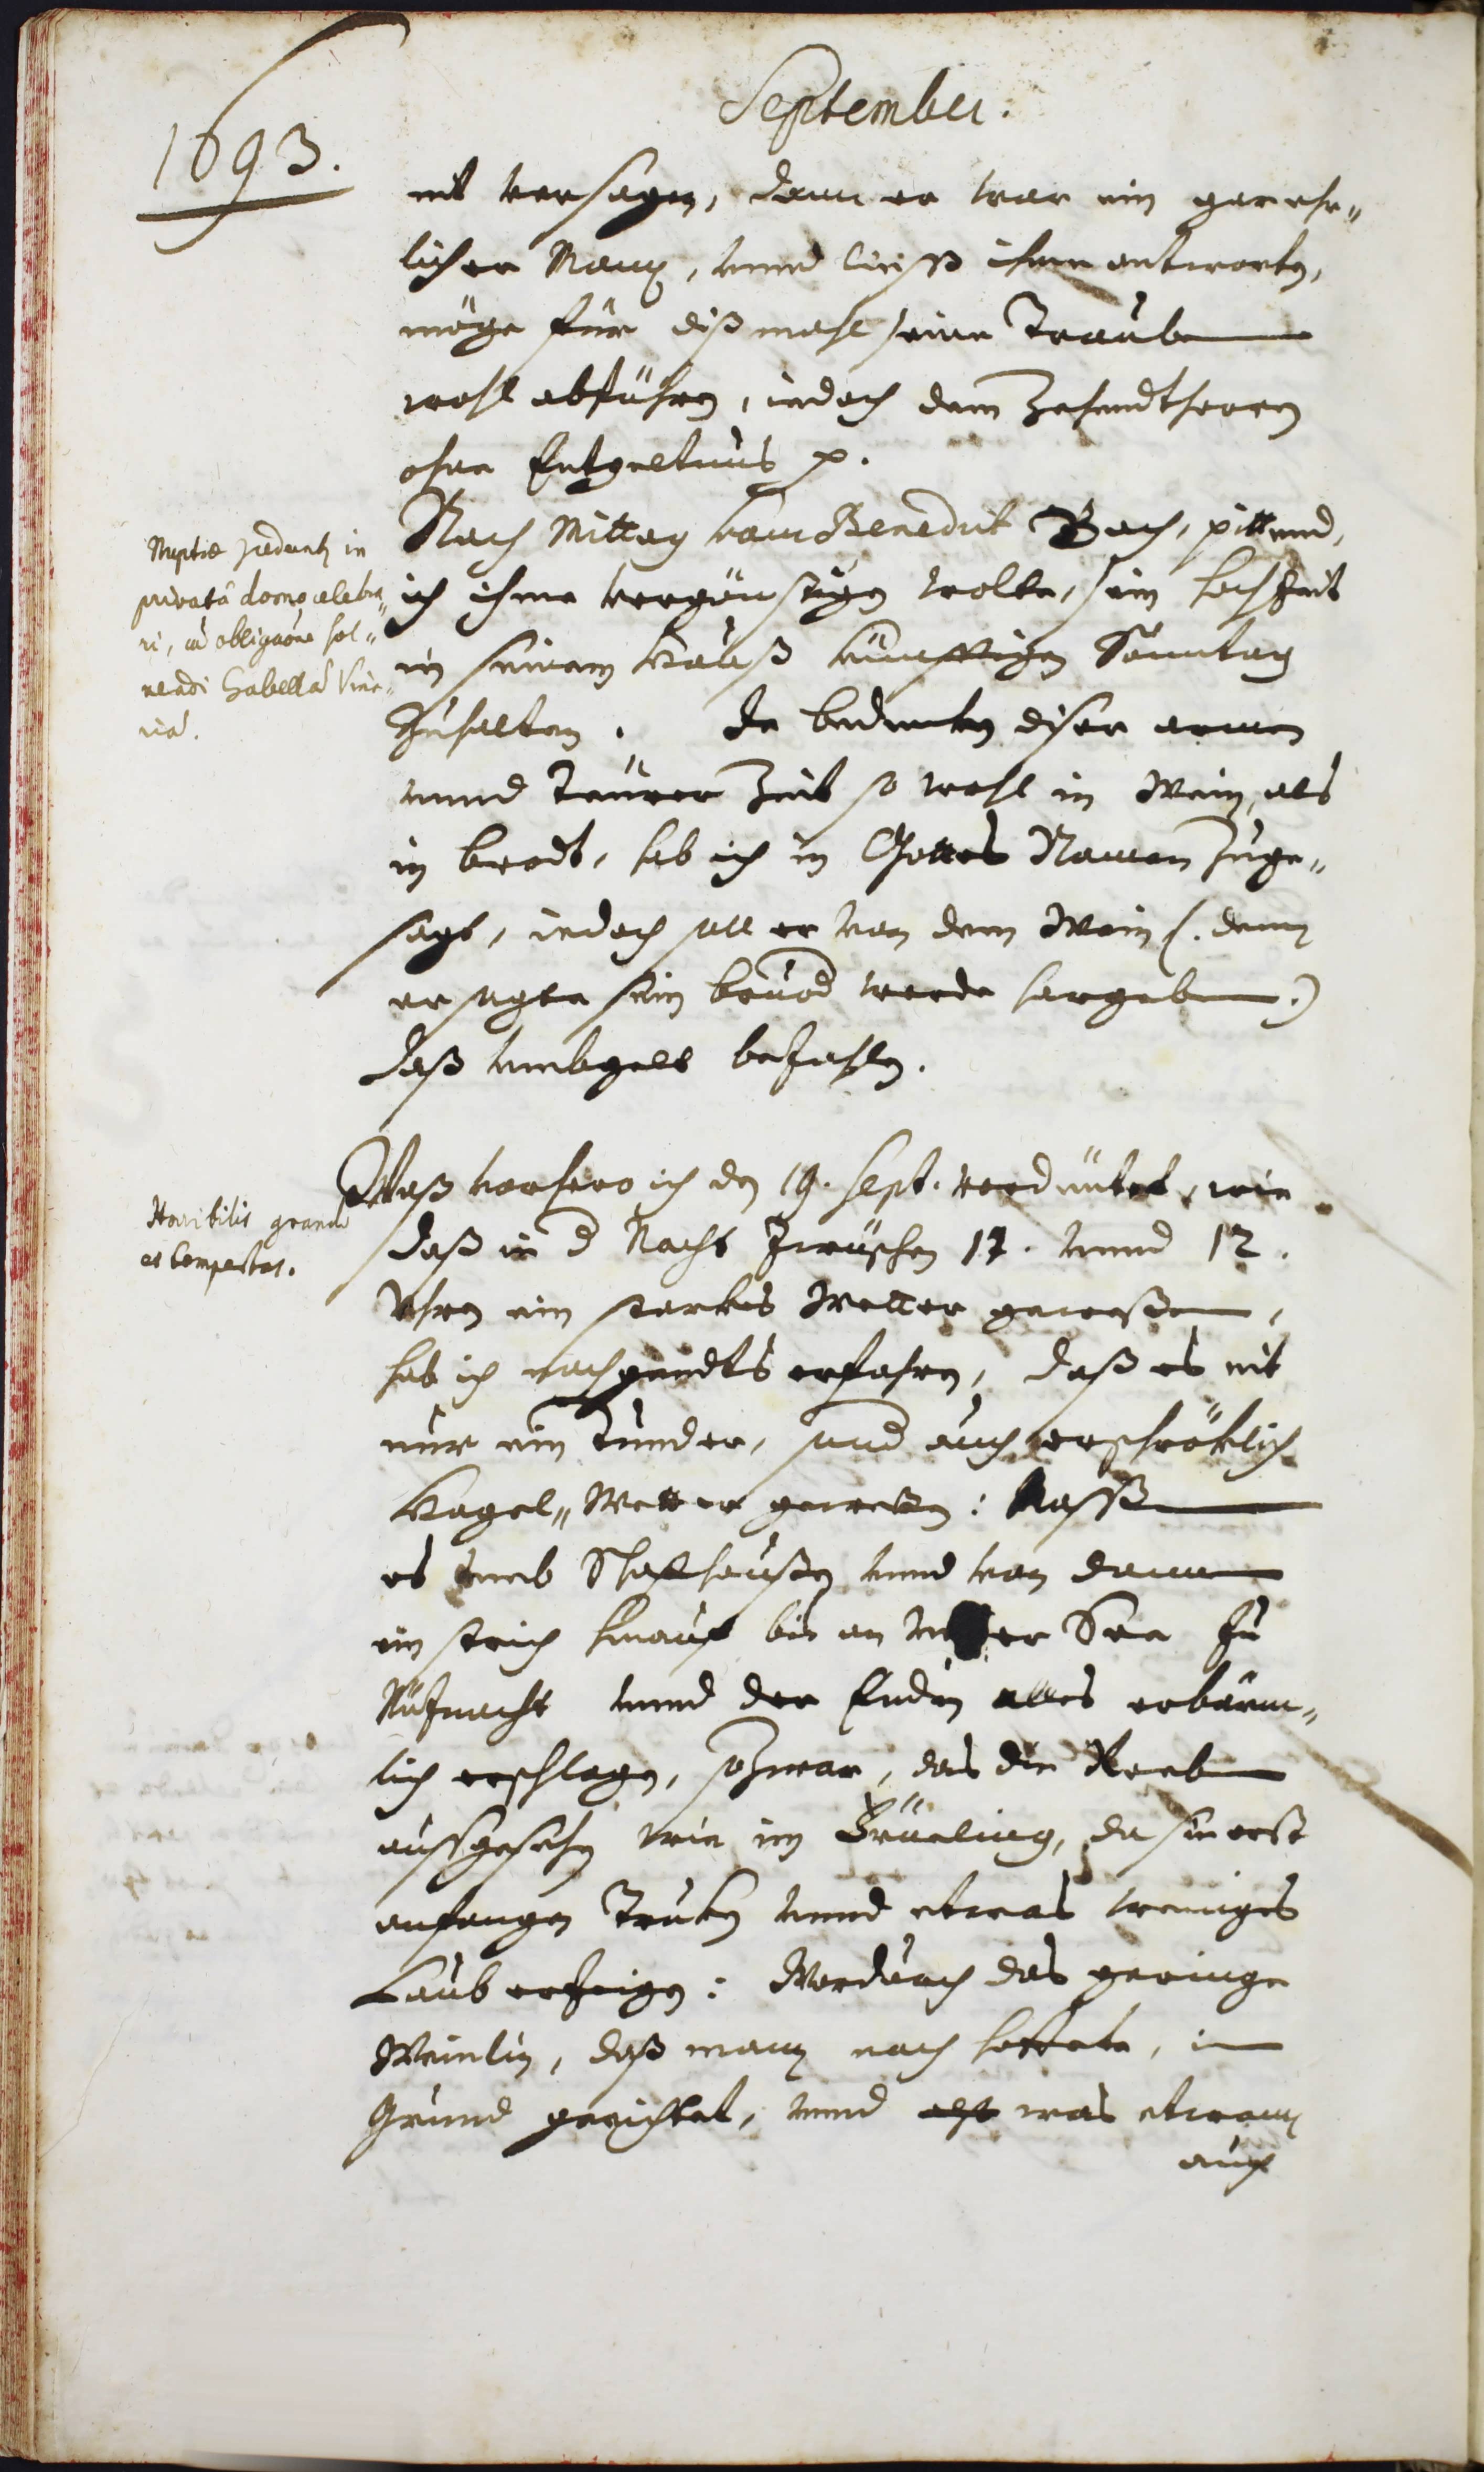 September.
1693.
nit versagen, dann er war ein gar ehr„
licher Mann, unnd liesse ihme antworten,
möge für diß mahl seine Trauben
wohl abführen, iedoch dem Zehendtherren
ohne Entgeltnus p.
Nach Mittag kam Benedict Bach, pittend,
ich ihme vergönstigen wolte, sein hochzeit
in seinem Hauß künfftigen Sonntag
zuhalten. In bedenken diser armen
unnd Teürer Zeit so wohl in Wein, als
in brodt, hab ich in Gottes Namen zuge„
sagt, iedoch soll er von dem Wein (. denn
er sagte sein bruod werde hergeben .)
daß umbgelt bezahlen.
Nuptiæ in
privatâ domo celebra„
ri, cū obligaōne sol„
vendi Gabellā Vina„
riā.
Waß vorhero ich den 19. Sept. verdeütet, wie
daß in d Nacht zwüschen 11. unnd 12.
Uhren ein starkes Wetter geweßen,
hab ich nachgendts erfahren, daß es nit
nur ein Dunder, sund auch erschröklich
Hagel„Wetter gewesen: Massen
es umb Schafhaußen unnd von dannen
ein strich hinauf bis an See zu
Küßnacht unnd der Enden alles erbärm„
lich erschlagen, so zwar, das die Reeben
aussgesehen wie im Früeling, da sie erst
anfangen Truken unnd etwas weniges
Laub erzeigen: Wordurch das geringe
Weinlin, daß mann noch hoffete, in
Grund gerichtet, unnd was etwann
auf
Horribilis grandi
et tempestas.